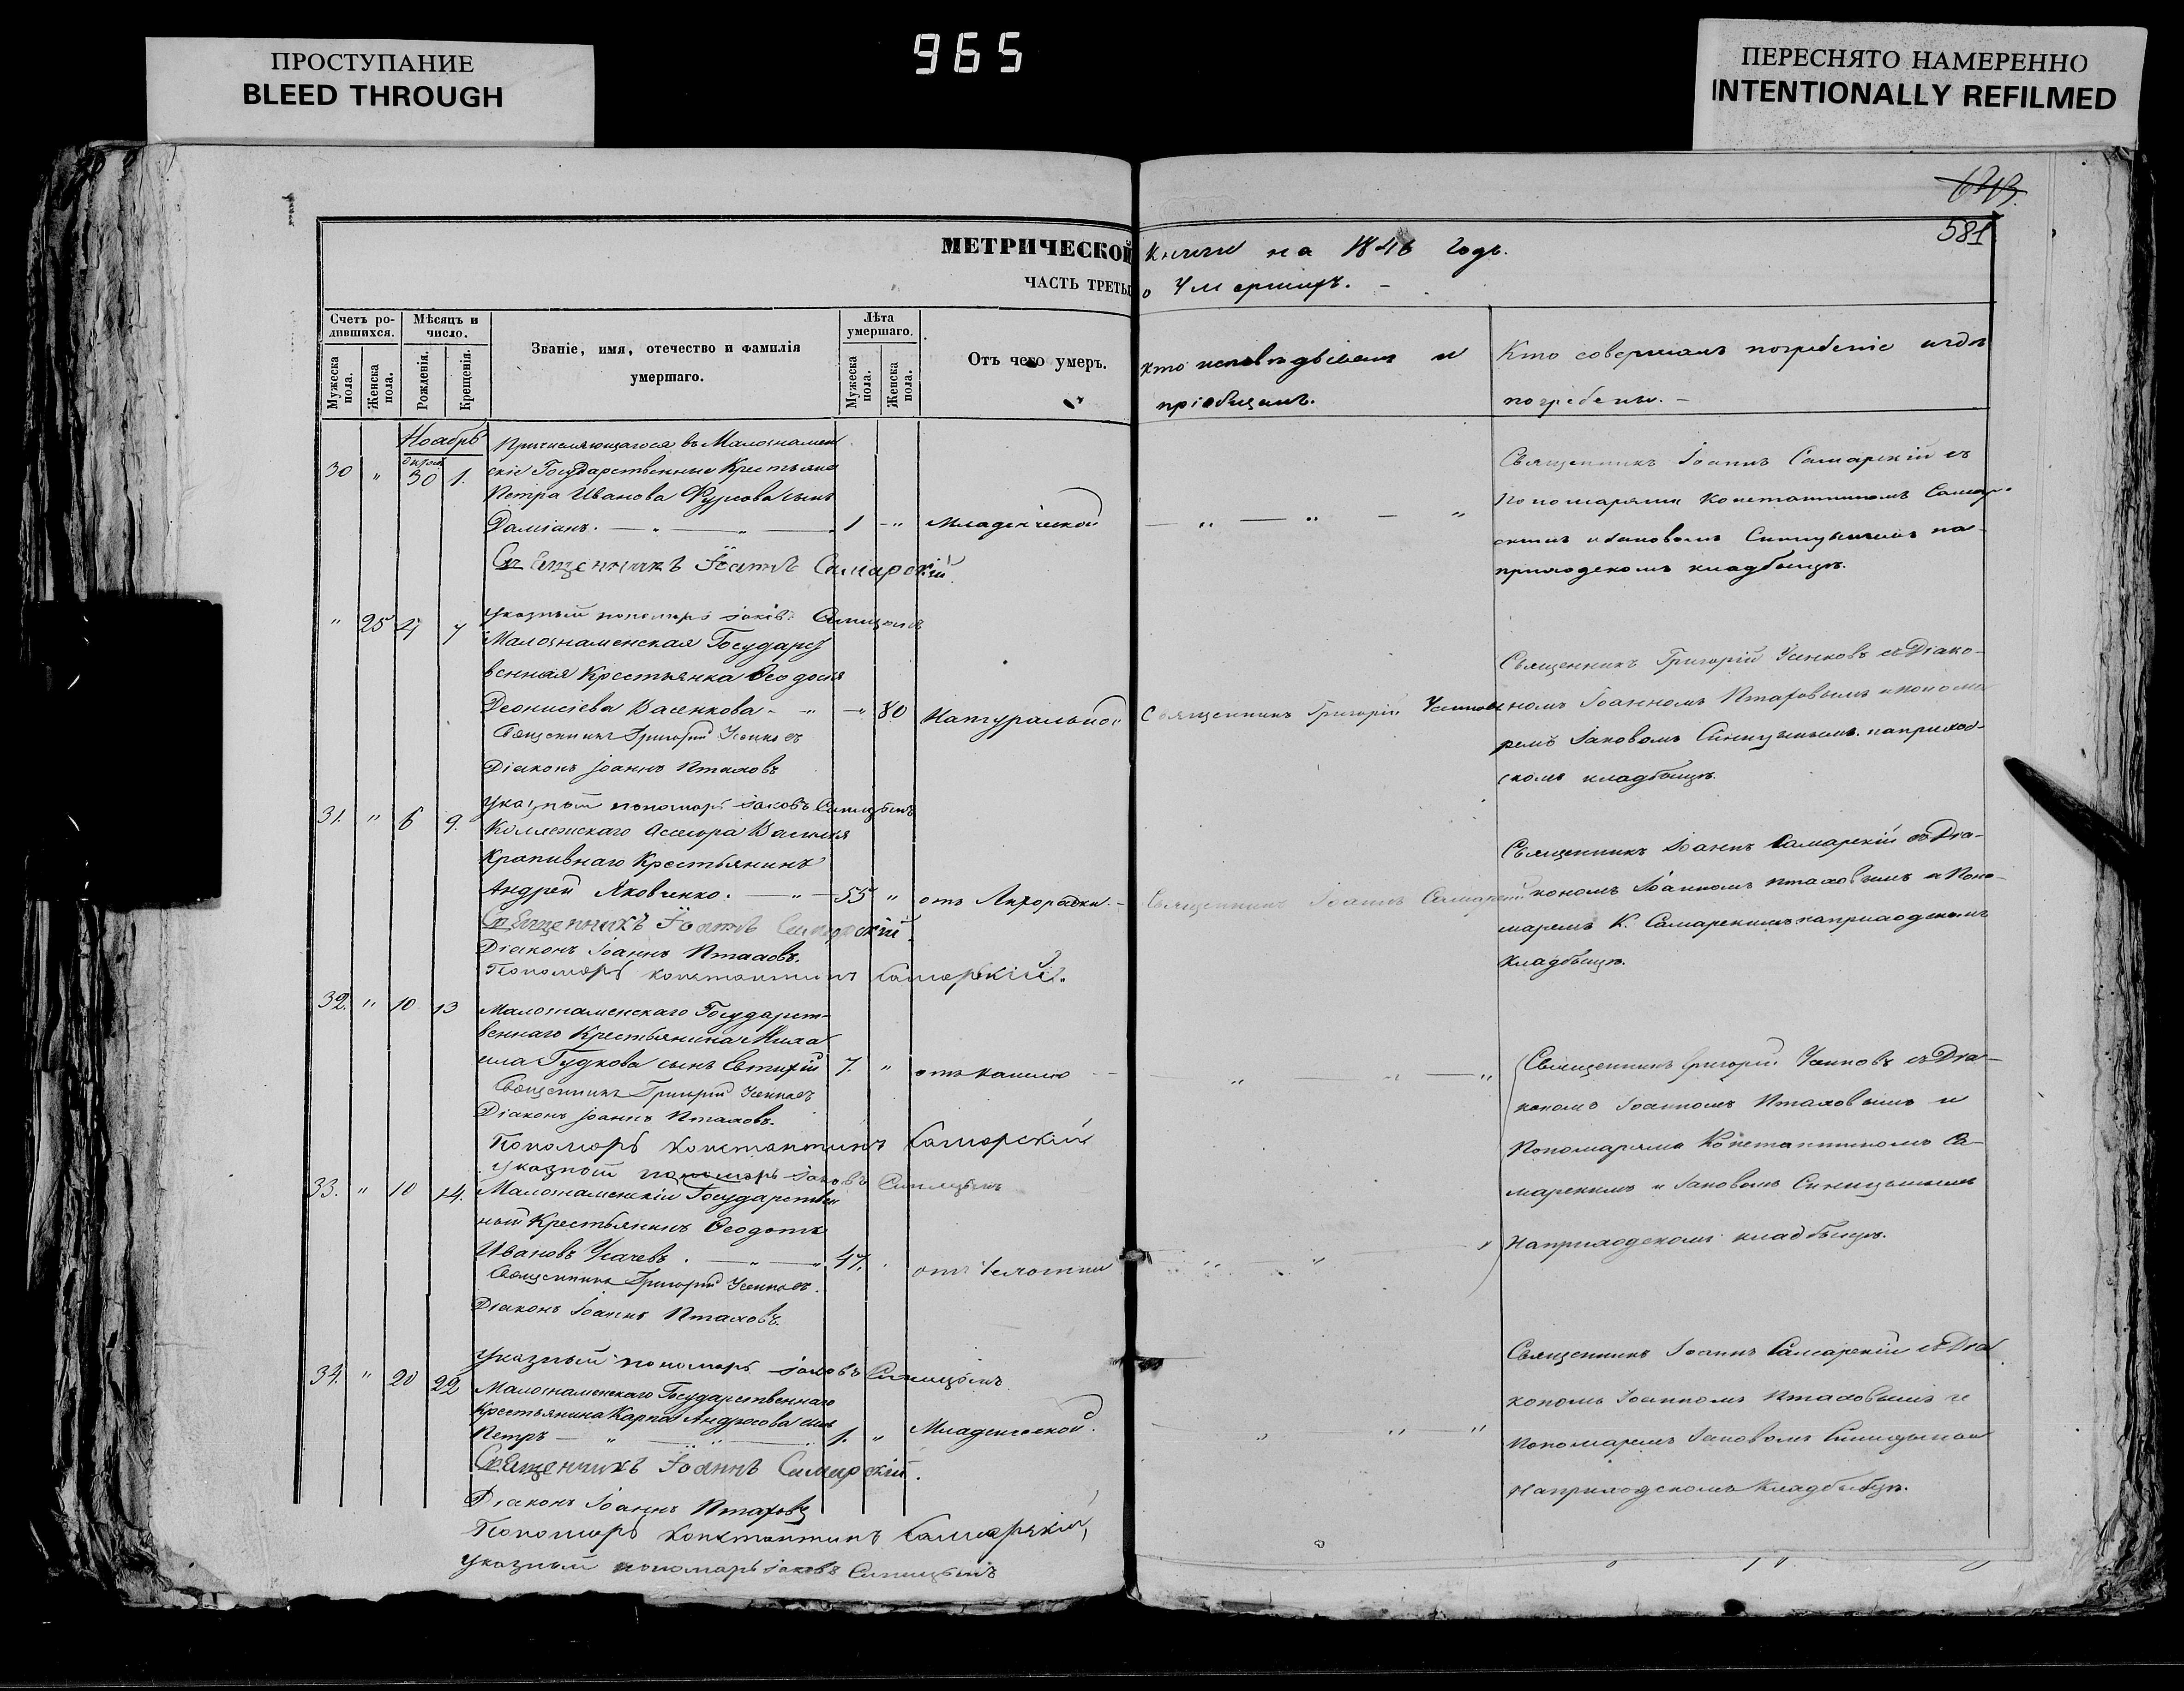 965
ПРОСТУПАНИЕ
BLEED THROUGH
ПЕРЕСНЯТО НАМЕРЕННО
INTENTIONALLY REFILMED
581
МЕТРИЧЕСКОЙ Книги на 1846 Годъ.
ЧАСТЬ ТРЕТЬ о Умершихъ. -
Счетъ ро-
дившихся.
Мужеска
пола.
Женска
пола.
Мѣсяцъ и
число.
Рожденія.
Крещенія.
Званіе, имя, отечество и фамилія
умершаго.
Лѣта
умершаго.
Мужеска
пола.
Женска
пола.
Отъ чего умеръ.
Кто исповѣдывалъ и
пріобщалъ.
Кто совершалъ погребеніе и гдѣ
погребены. -
Ноабрь
30 " 30 1.
Причисляющагося въ Малознамен
скіе Государственные Крестьяне
Петра Иванова сынъ
Даміанъ. — " — " 1 — " Младенческой
Священникъ Іоаннъ Самарскій.
Священникъ Іоаннъ Самарскій съ
Пономарями Константиномъ Самар-
скимъ и Іаковомъ Синицынымъ на
приходскомъ кладбищѣ.
Указный пономарь Іаковъ Синицынъ
" 25 4 7
Малознаменская Государст
венная Крестьянка Ѳеодосія
Деонисіева Васенкова - " — " 80 Натуральною
Священникъ Григорій Усиковъ
Діаконъ Іоаннъ Птаховъ
Священникъ Григорій Усиковъ
Священникъ Григорій Усиковъ съ Діако-
номъ Іоанномъ Птаховымъ и понома
ремъ Іаковомъ Синицынымъ на приход-
скомъ кладбищѣ.
Указный пономарь Іаковъ Синицынъ
31. " 6 9.
Коллежскаго Асесора Василія
Крапивнаго Крестьянинъ
Андрей Яковченко. — " — 55 " отъ Лихорадки. -
Священникъ Іоаннъ Самарскій.
Діаконъ Іоаннъ Птаховъ.
Пономарь Константинъ Самарскій.
Священникъ Іоаннъ Самарскій
Священникъ Іоаннъ Самарскій съ Діа-
кономъ Іоанномъ Птаховымъ и Поно-
маремъ К. Самарскимъ на приходскомъ
кладбищѣ.
32. " 10 13
Малознаменскаго Государст-
веннаго Крестьянина Миха
ила Гудкова сынъ Евтихій 7. " отъ кашлю
Священникъ Григорій Усиковъ
Діаконъ Іоаннъ Птаховъ.
Пономарь Константинъ Самарскій
Указный пономарь Іаковъ Синицынъ
Священникъ Григорій Усиковъ съ Діа-
кономъ Іоанномъ Птаховымъ и
Пономарями Константиномъ Са-
марскимъ и Іаковомъ Синицынымъ
На приходскомъ кладбищѣ.
33. " 10 14.
Малознаменскій Государствен
ный Крестьянинъ Ѳеодотъ
Ивановъ Усачевъ. — " — " 47.
Священникъ Григорій Усиковъ.
Діаконъ Іоаннъ Птаховъ.
Указный пономарь Іаковъ Синицынъ
34. " 20 22
Малознаменскаго Государственнаго
Крестьянина Карпа Андросова сынъ
Петръ — " — " 1. " Младенческой.
Священникъ Іоаннъ Самарскій.
Діаконъ Іоаннъ Птаховъ
Пономарь Константинъ Самарскій,
Указный пономарь Іаковъ Синицынъ
Священникъ Іоаннъ Самарскій съ Діа
кономъ Іоанномъ Птаховымъ и
Пономаремъ Іаковомъ Синицынымъ
На приходскомъ Кладбищѣ.